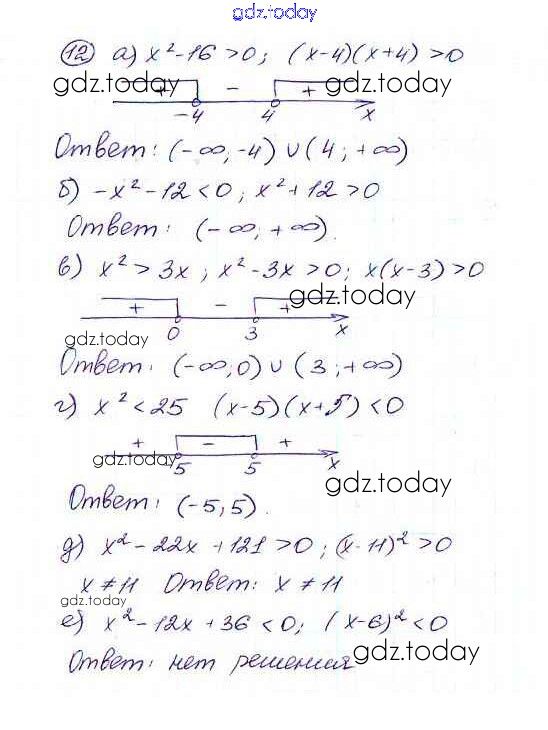 gdz.today
12 а) x²-16 >0; (x-4)(x+4) >0
gdz.today gdz.today
+ - +
-4 4 x
Ответ: (-∞, -4) ∪ (4; +∞)
б) -x²-12<0, x²+12>0
gdz.today
Ответ: (-∞, +∞).
в) x²>3x; x²-3x>0; x(x-3)>0
gdz.today
+ - +
gdz.today
0 3 x
Ответ: (-∞;0) ∪ (3; +∞)
г) x²<25 (x-5)(x+5)<0
+ - +
gdz.today
5 5 x
gdz.today
Ответ: (-5;5).
д) x²-22x+121>0; (x-11)²>0
x≠11 Ответ: x≠11
gdz.today
е) x²-12x+36<0; (x-6)²<0
gdz.today
Ответ: нет решения